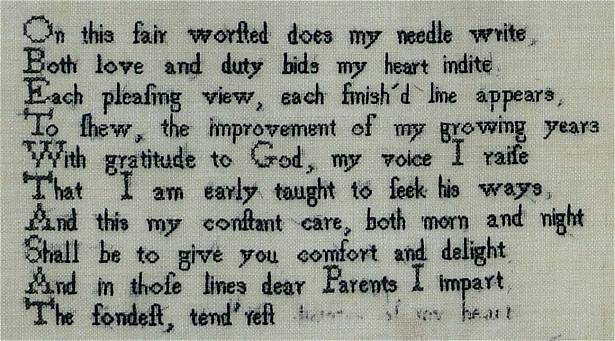 On this fair worſted does my needle write,
Both love and duty bids my heart indite
Each pleaſing view, each finish'd line appears,
To ſhew, the improvement of my growing years
With gratitude to God, my voice I raiſe
That I am early taught to ſeek his ways,
And this my conſtant care, both morn and night
Shall be to give you comfort and delight
And in thoſe lines dear Parents I impart
The fondeſt, tend'reſt of my heart